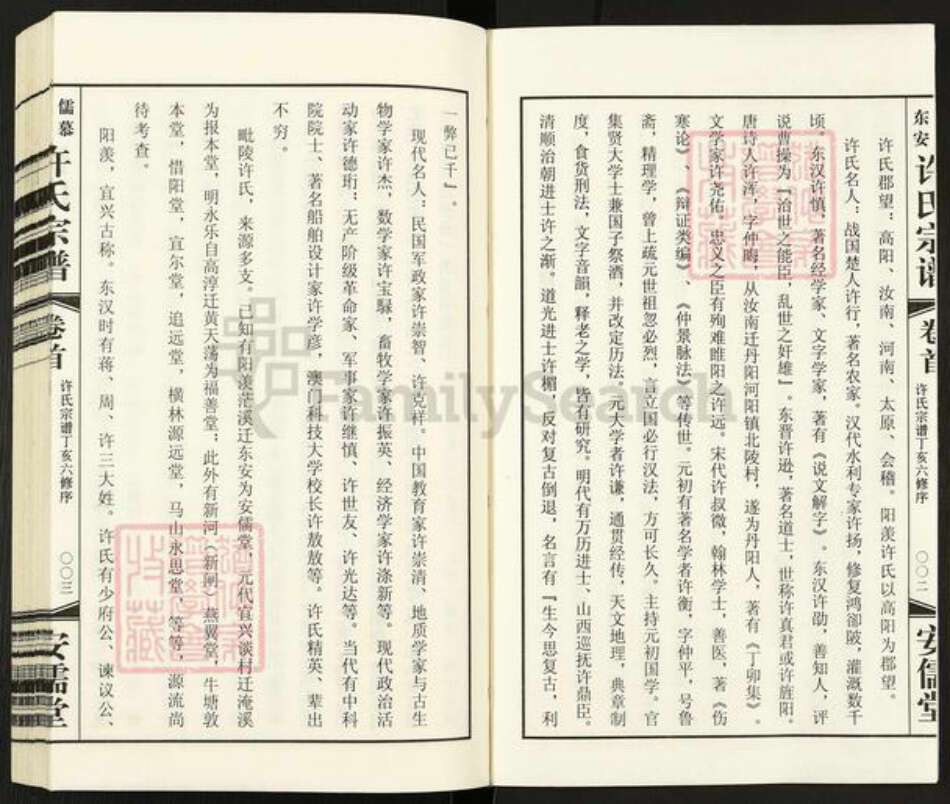 东安 许氏宗谱 卷首 许氏宗谱丁亥六修序 〇〇二 安儒堂
许氏郡望：高阳、汝南、河南、太原、会稽。阳羡许氏以高阳为郡望。
许氏名人：战国楚人许行，著名农家。汉代水利专家许扬，修复鸿郤陂，灌溉数千
顷。东汉许慎，著名经学家、文字学家，著有《说文解字》。东汉许劭，善知人，评
说曹操为『治世之能臣，乱世之奸雄』。东晋许逊，著名道士，世称许真君或许旌阳。
唐诗人许浑，字仲晦，从汝南迁丹阳河阳镇北陵村，遂为丹阳人，著有《丁卯集》。
文学家许尧佑。忠义之臣有殉难睢阳之许远。宋代许叔微，翰林学士，善医，著《伤
寒论》、《辩证类编》、《仲景脉法》等传世。元初有著名学者许衡，字仲平，号鲁
斋，精理学，曾上疏元世祖忽必烈，言立国必行汉法，方可长久。主持元初国学。官
集贤大学士兼国子祭酒，并改定历法。元大学者许谦，通贯经传，天文地理，典章制
度，食货刑法，文字音韻，释老之学，皆有研究。明代有万历进士、山西巡抚许鼎臣。
清顺治朝进士许之渐。道光进士许楣，反对复古倒退，名言有『生今思复古，利
一弊已千』。
现代名人：民国军政家许崇智、许克祥。中国教育家许崇清、地质学家与古生
物学家许杰，数学家许宝騄，畜牧学家许振英、经济学家许涤新等。现代政治活
动家许德珩；无产阶级革命家、军事家许继慎、许世友、许光达等。当代有中科
院院士、著名船舶设计家许学彦，澳门科技大学校长许敖敖等。许氏精英、辈出
不穷。
毗陵许氏，来源多支。已知有阳羡茫溪迁东安为安儒堂，元代宜兴谈村迁淹溪
为报本堂，明永乐自高淳迁黄天荡为福善堂；此外有新河（新闸）燕翼堂，牛塘敦
本堂，惜阳堂，宜尔堂，追远堂，横林源远堂，马山永思堂，等等，源流尚
待考查。
阳羡，宜兴古称。东汉时有蒋、周、许三大姓。许氏有少府公、谏议公、
儒慕 许氏宗谱 卷首 许氏宗谱丁亥六修序 〇〇三 安儒堂
FamilySearch